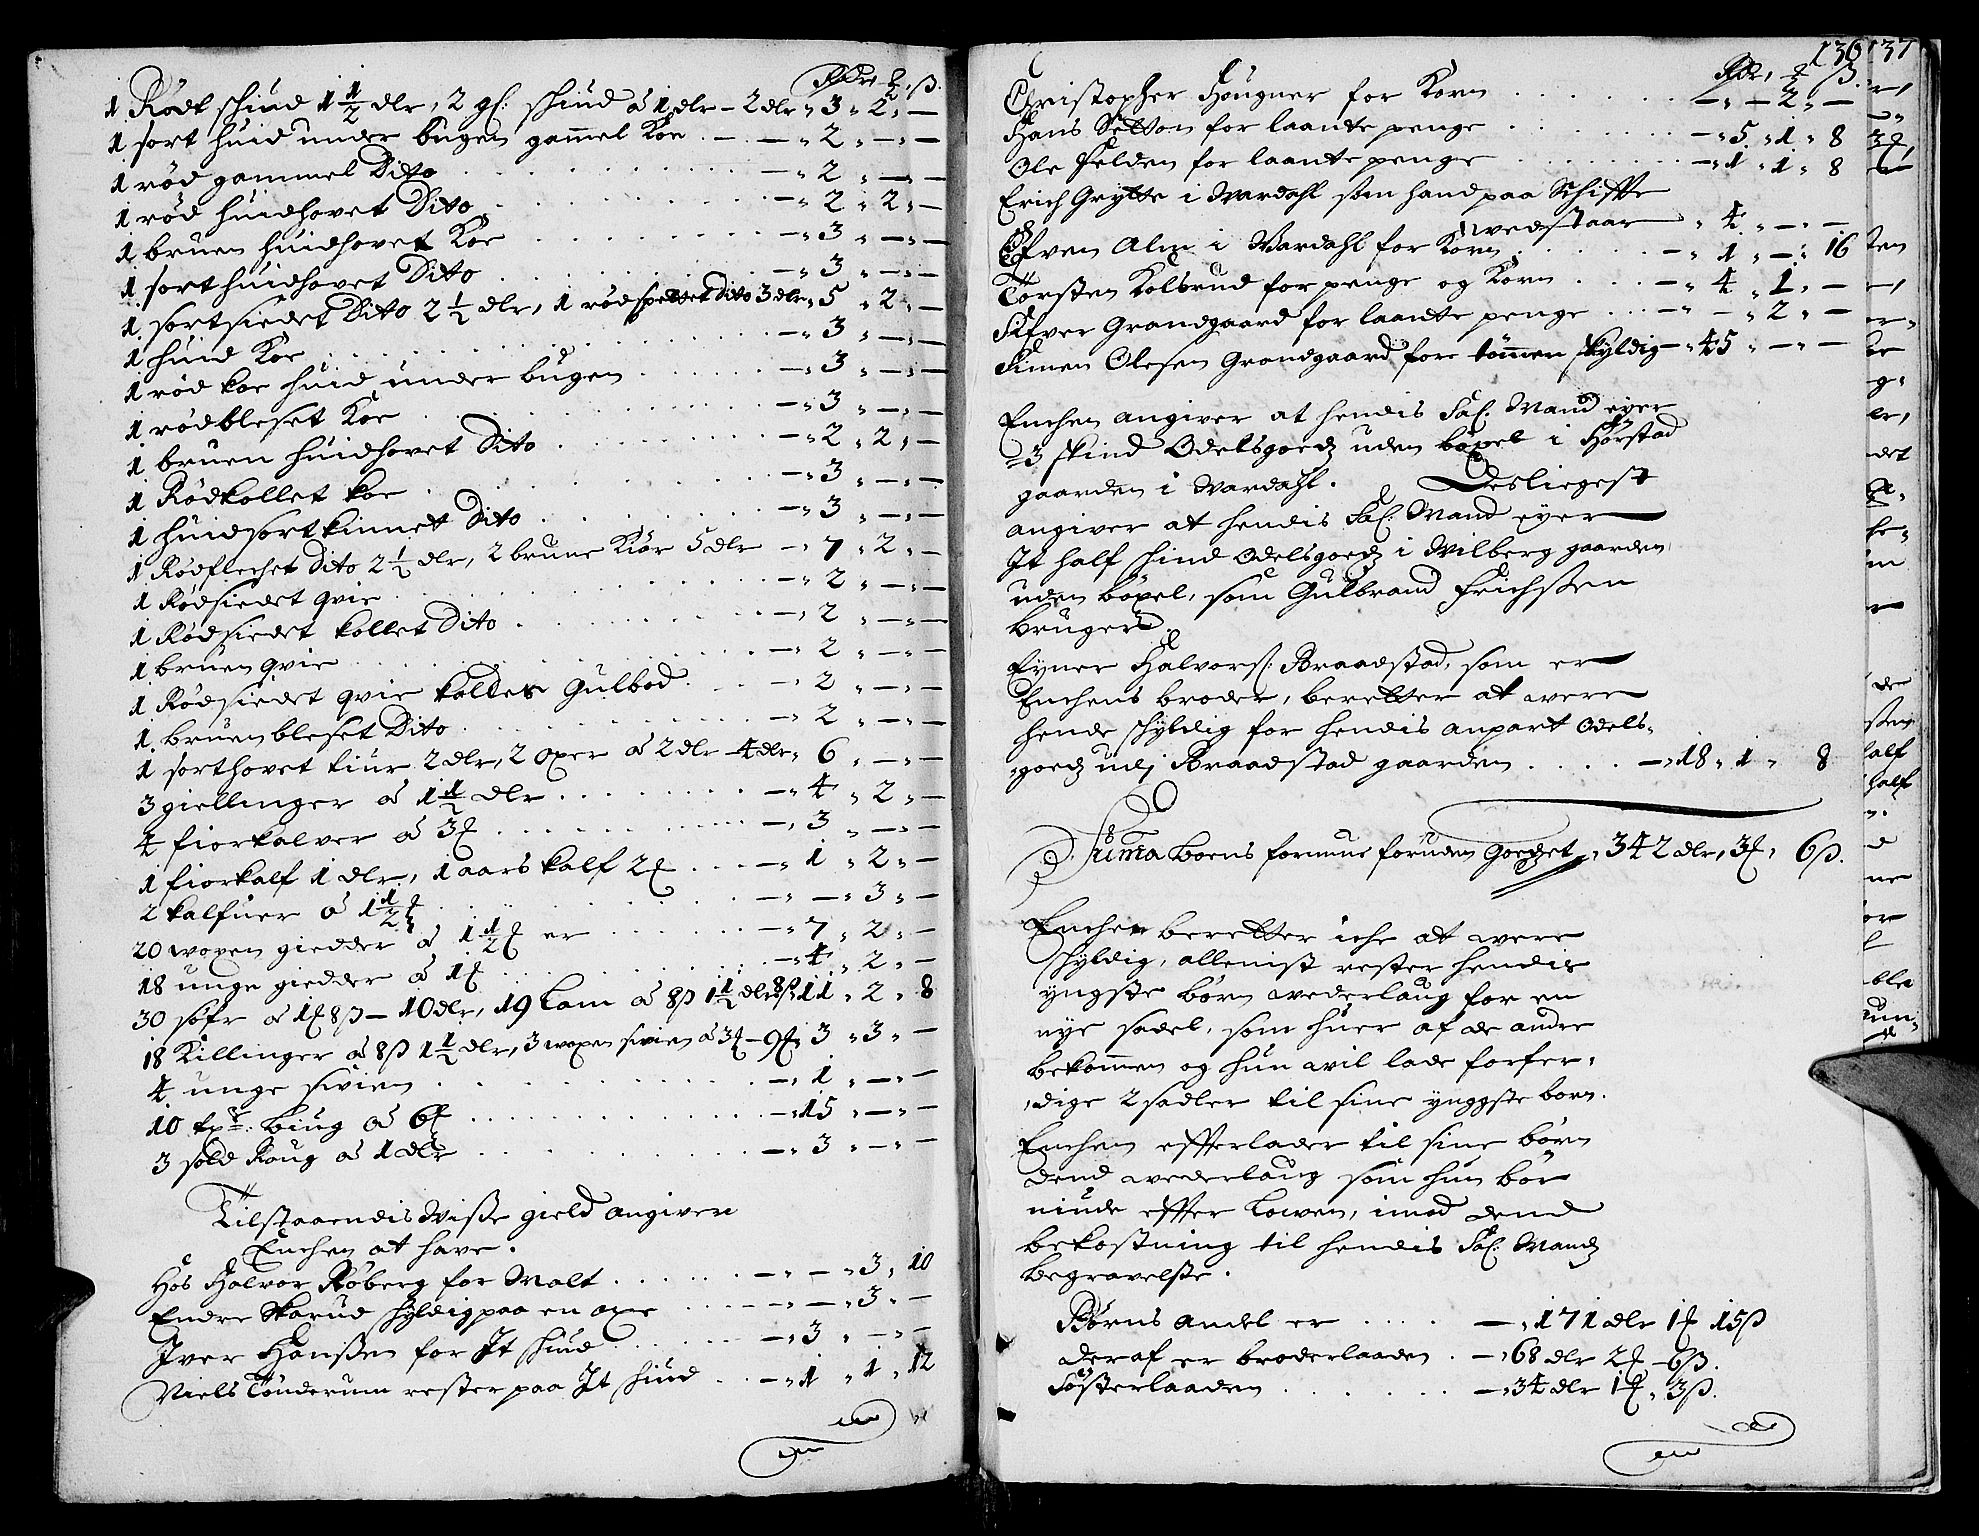 Rdr. ƶ ß.
1 Rödt schind 1 1/2 dlr, 2 gl: schind â 1 dlr - 2 dlr „ 3 „ 2 „ —
1 sort huid under bugen gammel Koe . — . — „ 2 „ — „ —
1 rød gammel Dito . . . — „ 2 „ — „ —
1 rød huidhovet Dito . . . — „ 2 „ 2 „ —
1 bruen huidhovet Koe . . . — „ 3 „ — „ —
1 sort huidhovet Dito . . . — „ 3 „ — „ —
1 sortsiedet Dito 2 1/2 dlr, 1 rødspettet Dito 3 dlr „ 5 „ 2 „ —
1 huid Koe . . . — „ 3 „ — „ —
1 rød koe huid under bugen . . . — „ 3 „ — „ —
1 rødbleset Koe . . . — „ 3 „ — „ —
1 bruen huidhovet Dito . . . — „ 2 „ 2 „ —
1 Rødkollet koe . . . — „ 3 „ — „ —
1 huidsortkinnet Dito . . . — „ 3 „ — „ —
1 Rødflechet Dito 2 1/2 dlr, 2 brune Kiör 5 dlr — „ 7 „ 2 „ —
1 Rødsiedet qvie . . . — „ 2 „ — „ —
1 Rødsiedet kollet Dito . . . — „ 2 „ — „ —
1 bruen qvie . . . — „ 2 „ — „ —
1 Rødsiedet qvie kaldes Gulbod . . . — „ 2 „ — „ —
1 bruen bleset Dito . . . — „ 2 „ — „ —
1 sorthovet tiur 2 dlr, 2 oxer â 2 dlr - 4 dlr „ 6 „ — „ —
3 giellinger â 1 1/2 dlr . . . — „ 4 „ 2 „ —
4 fiorkalver â 3 ƶ . . . — „ 3 „ — „ —
1 fiorkalf 1 dlr, 1 aars kalf 2 ƶ . . . — „ 1 „ 2 „ —
2 kalfuer â 1 1/2 ƶ . . . — „ — „ 3 „ —
20 woxen giedder â 1 1/2 ƶ er . . . — „ 7 „ 2 „ —
18 unge giedder â 1 ƶ . . . — „ 4 „ 2 „ —
30 söfr â 1 ƶ 8 ß — 10 dlr, 19 Lam â 8 ß 1 1/2 dlr 8 ß „ 11 „ 2 „ 8
18 Killinger â 8 ß 1 1/2 dlr, 3 woxen swien â 3 ƶ — 9 ƶ „ 3 „ 3 „ —
4 unge swien . . . — „ 1 „ — „ —
10 tr: biug â 6 ƶ . . . — „ 15 „ — „ —
3 sold Roug â 1 dlr . . . — „ 3 „ — „ —
Tilstaaendis Wisse gield angiver
Enchen at have.
Hos Halvor Röberg for Malt . . . — „ — „ 3 „ 10
Endre Skarud schyldig paa en oxe . . . — „ — „ 3 „ —
Iver Hanssen for It schind . . . — „ 3 „ — „ —
Niels Tönderum rester paa It schind . . — „ 1 „ 1 „ 12
136
137
Rdr. ƶ ß.
Christopher Hougner for Korn . . . — „ — „ 2 „ —
Hans Setton for laante penge . . . — „ 5 „ 1 „ 8
Ole Felden for laante penge . . . — „ 1 „ 1 „ 8
Erich Grytte i Wardahl som hand paa Schifte
wedstaar „ 4 „ — „ —
Efven Alm i Wardahl for Korn . . . — „ 1 „ — „ 16
Torsten Kolsrud for penge og Korn . . . — „ 4 „ 1 „ —
Sifver Grandgaard for laante penge . . . — „ — „ 2 „ —
Simen Olesen Grandgaard for tömmer skyldig — „ 45 „ — „ —
Enchen angiver at hendis Sal: Mand eyer
3 skind Odelsgoedz uden böxel i Hörstad
gaarden i Wardahl. Desliegest
angiver at hendis Sal: Mand eyer
It half schind Odelsgoedz i Wilberg gaarden
uden böxel, som Gulbrand Erichssen
bruger.
Eyner Halvors: Braadstad, som er
Enchens broder, beretter at were
hende schyldig for hendis anpart Odels-
goedz udj Braadstad gaarden . . . — „ 18 „ 1 „ 8
Suma boens formue foruden Goedzet „ 342 dlr, 3 ƶ, 6 ß.
Enchen beretter iche at were
schyldig, allenist rester hendis
yngste børn wederlaug for en
nye sadel, som huer af de andre
bekommen og hun wil lade forfer-
dige 2 sadler til sine ynggste born.
Enchen efterlader til sine børn
dend wederlaug som hun bör
niude efter Lowen, imod dend
bekostning til hendis Sal: Mandz
begravelse.
Börns andel er . . . — „ 171 dlr 1 ƶ 15 ß
deraf er broderlaaden . — „ 68 dlr 2 ƶ - 6 ß.
Sösterlaaden . . . — „ 34 dlr 1 ƶ „ 3 ß.